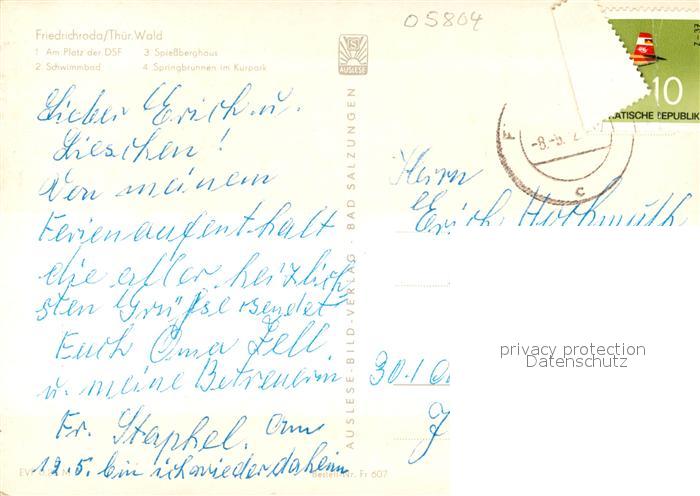 05804
Friedrichroda/Thür. Wald
1 Am Platz der DSF 3 Spießberghaus
2 Schwimmbad 4 Springbrunnen im Kurpark
AUSLESE
10
ATISCHE REPUBLIK
-8.-5.
c
Lieber Erich u.
Lieschen!
Von meinem
Ferienaufenthalt
die aller herzlich-
sten Grüße sendet
Euch Oma Zell
u. meine Betreuerin
Fr. Staphel. Am
12.5. bin ich wieder daheim
AUSLESE-BILD-VERLAG · BAD SALZUNGEN
Herrn
Erich Huthmuth
301
J
privacy protection
Datenschutz
Bestell-Nr. Fr 607